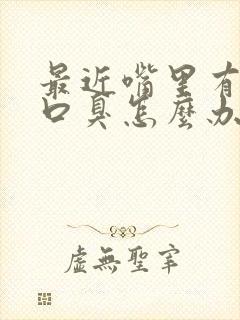 最近嘴里有
口臭怎麼办
虚無聖宰